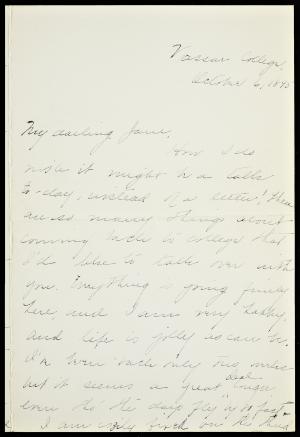 Vassar College,
October 6, 1895
My darling Jane,
How I do
wish it might be a talk
to-day, instead of a letter! There
are so many things about
coming back to college that
I'd like to talk over with
you. Everything is going finely
here, and I am very happy,
and life is jolly as can be.
I've been back only two weeks
but it seems a great deal longer,
even tho' the days fly by so fast.
I am only